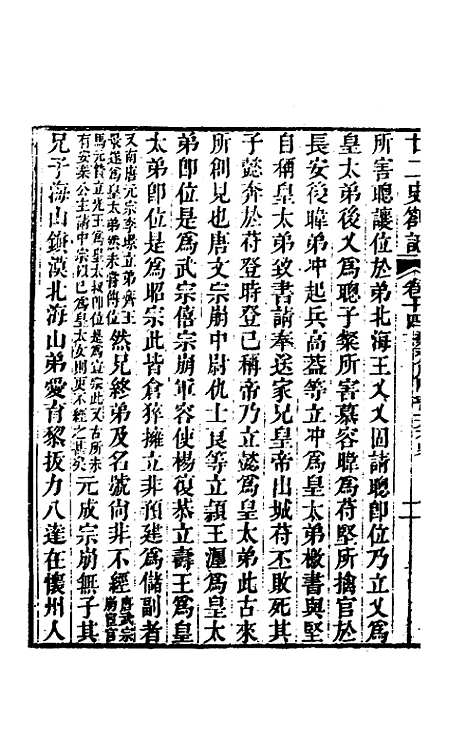 廿二史劄記
卷十四
所害聰讓位於弟北海王乂乂固請聰卽位乃立乂爲
皇太弟後乂爲聰子粲所害慕容暐爲苻堅所擒官於
長安後暐弟冲起兵高蓋等立冲爲皇太弟檄書與堅
自稱皇太弟致書請奉送家兄皇帝出城苻丕敗死其
子懿奔於苻登時登已稱帝乃立懿爲皇太弟此古來
所創見也唐文宗崩中尉仇士良等立潁王瀍爲皇太
弟卽位是爲武宗僖宗崩軍容使楊復恭立壽王爲皇
太弟卽位是爲昭宗此皆倉猝擁立非預建爲儲副者
又南唐元宗李璟立弟齊王
景遂爲皇太弟然未嘗傳位
然兄終弟及名號尙非不經
唐武宗
崩宦官
馬元贄立光王爲皇太叔卽位是爲宣宗此又古所未
有安樂公主請中宗以已爲皇太女則更不經之甚矣
元成宗崩無子其
兄子海山鎭漠北海山弟愛育黎拔力八達在懷州人